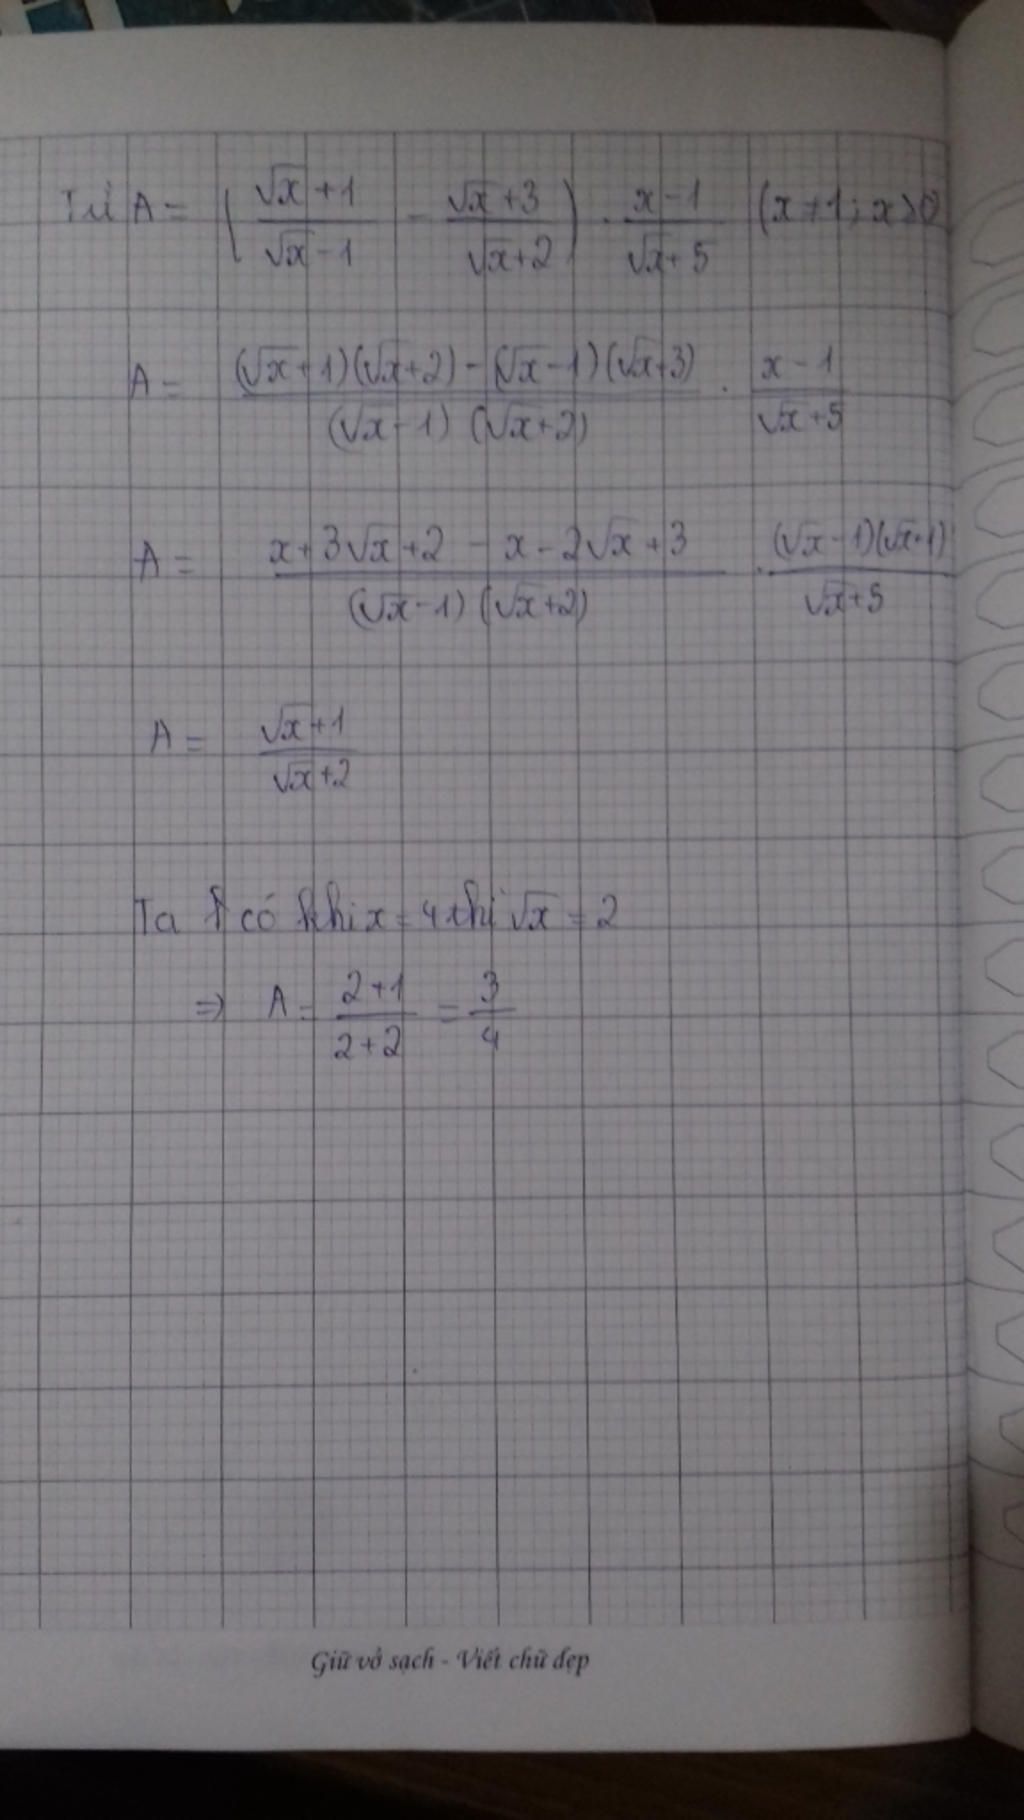 Từ A = ( (√x + 1)/(√x - 1) - (√x + 3)/(√x + 2) ) . (x - 1)/(√x + 5) (x ≠ 1; x ≥ 0
A = ((√x + 1)(√x + 2) - (√x - 1)(√x + 3))/((√x - 1)(√x + 2)) . (x - 1)/(√x + 5)
A = (x + 3√x + 2 - x - 2√x + 3)/((√x - 1)(√x + 2)) . ((√x - 1)(√x + 1))/(√x + 5)
A = (√x + 1)/(√x + 2)
Ta có khi x = 4 thì √x = 2
=> A = (2 + 1)/(2 + 2) = 3/4
Giữ vở sạch - Viết chữ đẹp